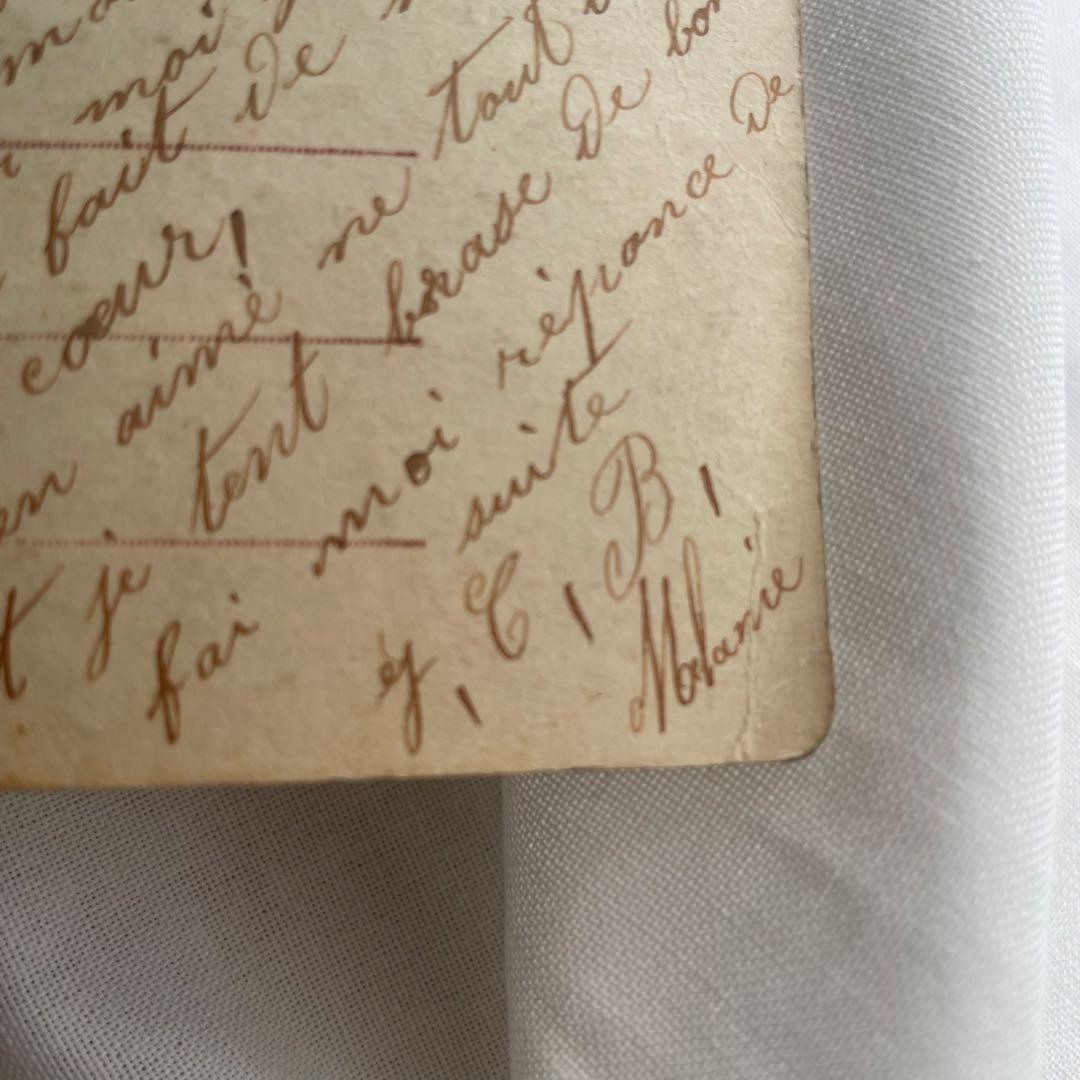 moi
fait De
cœur!
en aimé ne tout
t je tent brase De bon
fai moi réponce De
suite
y, C, B,
Melanie